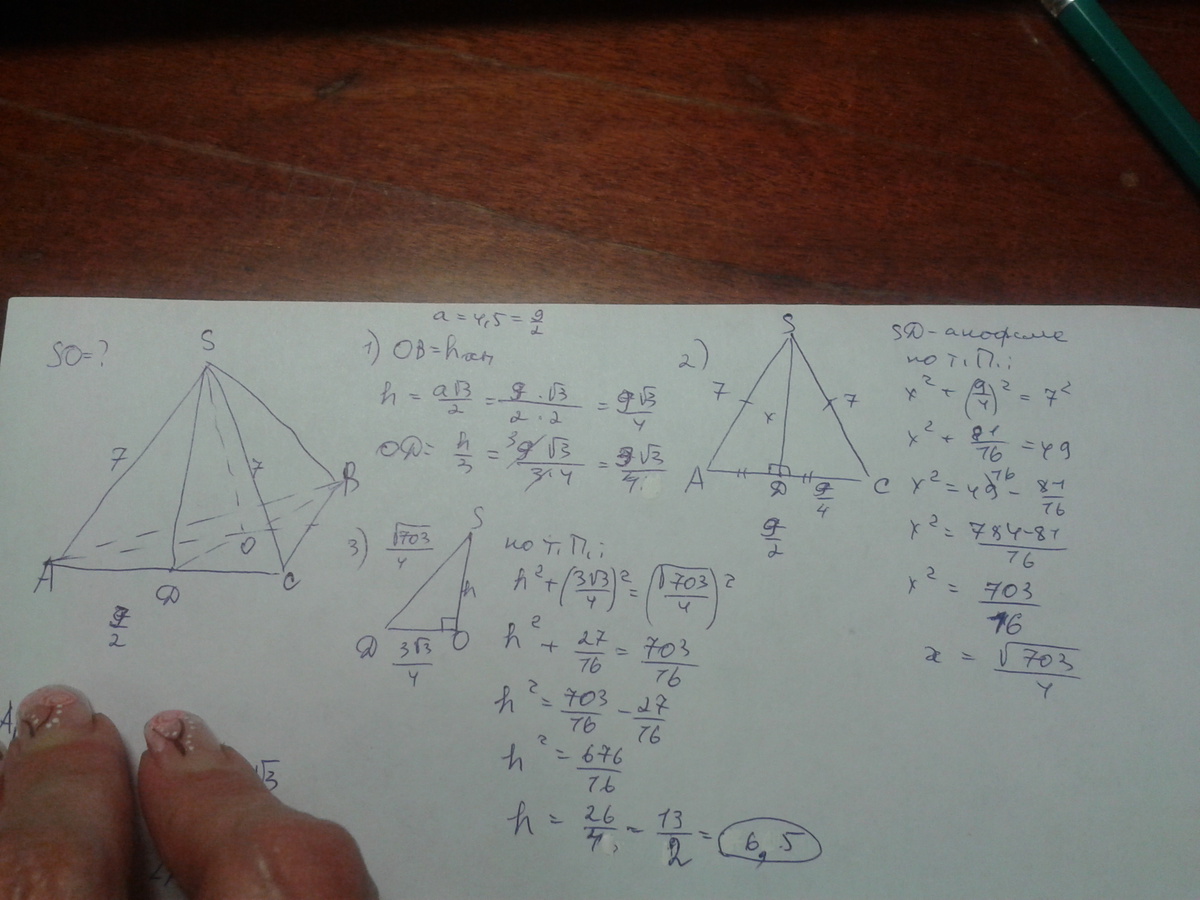 SO=?
S
7
7
A
D
C
B
O
9/2
a = 4,5 = 9/2
1) OB = h
h = a√3/2 = 9·√3/2·2 = 9√3/4
OD = h/3 = ³9√3/3·4 = 3√3/4
2)
S
7
x
7
A
D
9/4
C
9/2
SD - апофема
по т. П.:
x² + (9/4)² = 7²
x² + 81/16 = 49
x² = 49^16 - 81/16
x² = 784-81/16
x² = 703/16
x = √703/4
3)
√703/4
S
h
D
3√3/4
O
по т. П.:
h² + (3√3/4)² = (√703/4)²
h² + 27/16 = 703/16
h² = 703/16 - 27/16
h² = 676/16
h = 26/4 = 13/2 = 6,5
A
√3